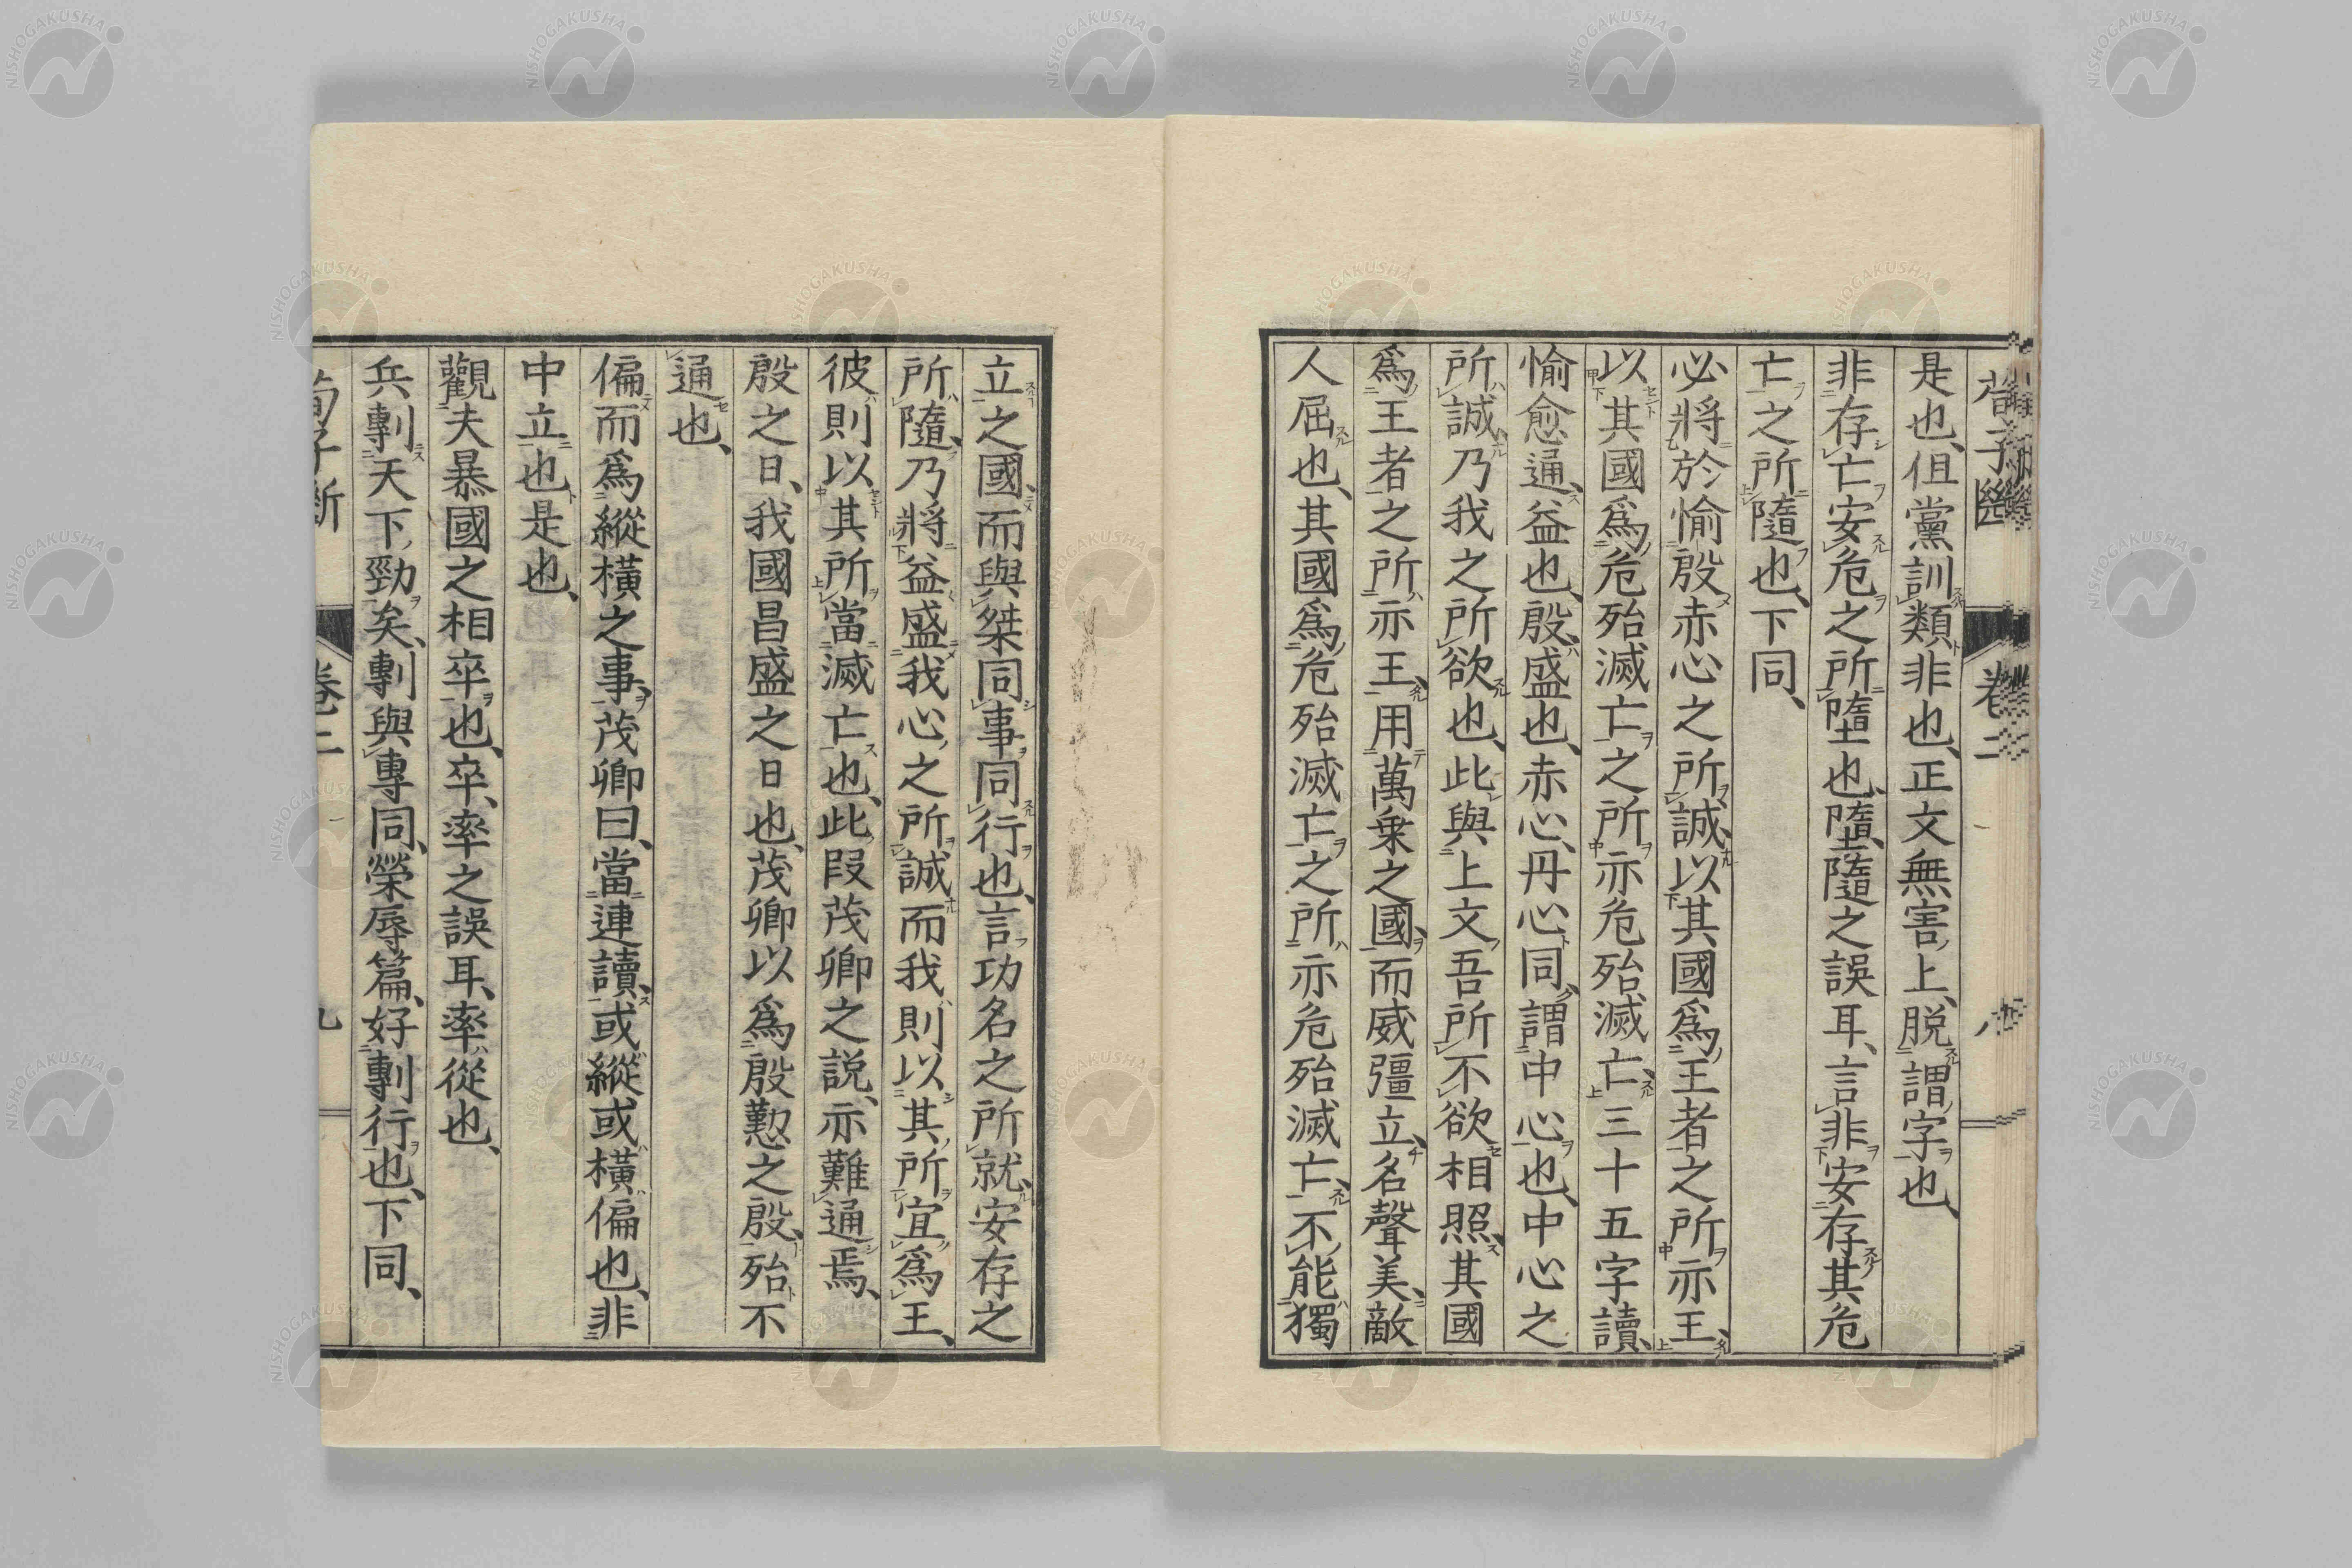 是也、但黨訓類非也、正文無害、上脱謂字也、
非存亡安危之所墮也、墮、隨之誤耳、言非安存其危
亡之所隨也、下同、
必將於愉殷赤心之所、誠以其國爲王者之所亦王、
以其國爲危殆滅亡之所亦危殆滅亡、三十五字讀、
愉愈通、益也、殷、盛也、赤心、丹心同、謂中心也、中心之
所誠、乃我之所欲也、此與上文吾所不欲相照、其國
爲王者之所亦王、用萬乗之國、而威彊立、名聲美、敵
人屈也、其國爲危殆滅亡之所亦危殆滅亡、不能獨
立之國、而與桀同事同行也、言功名之所就、安存之
所隨、乃將益盛我心之所誠而我則以其所宜爲王、
彼則以其所當滅亡也、此段茂卿之説、亦難通焉、
殷之日、我國昌盛之日也、茂卿以爲殷懃之殷、殆不
通也、
偏而爲縱橫之事、茂卿曰、當連讀、或縱或橫偏也、非
中立也是也、
觀夫暴國之相卒也、卒、率之誤耳、率從也、
兵剸天下勁矣、剸與專同、榮辱篇、好剸行也、下同、
荀子斷
卷二
九
卷二